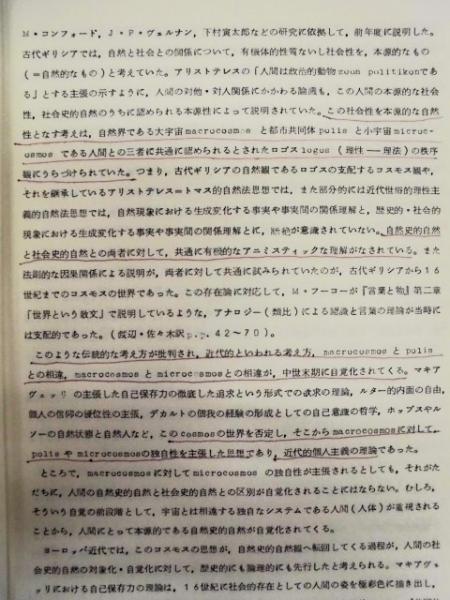 M・コンフォード，J・P・ヴェルナン，下村寅太郎などの研究に依拠して，前年度に説明した。
古代ギリシアでは，自然と社会との関係について，有機体的性質ないし社会性を，本源的なもの
（＝自然的なもの）と考えていた。アリストテレスの「人間は政治的動物zoon politikonであ
る」とする主張の示すように，人間の対他・対人関係にかかわる論議も，この人間の本源的な社会
性，社会史的自然のうちに認められる本源性によって説明されていた。この社会性を本源的な自然
性となす考えは，自然界である大宇宙macrocosmosと都市共同体polisと小宇宙microc-
osmosである人間との三者に共通に認められるとされたロゴスlogus（理性──理法）の秩序
観にうらづけられていた。つまり，古代ギリシアの自然観であるロゴスの支配するコスモス観や，
それを継承しているアリストテレス＝トマス的自然法思想では，また部分的には近代世俗的理性主
義的自然法思想では，自然現象における生成変化する事実や事実間の関係理解と，歴史的・社会的
現象における生成変化する事実や事実間の関係理解とに，断絶が意識されていない。自然史的自然
と社会史的自然との両者に対して，共通に有機的なアニミスティックな理解がなされている。また
法則的な因果関係による説明が，両者に対して共通に試みられていたのが，古代ギリシアから16
世紀までのコスモスの世界であった。この存在論に対応して，M・フーコーが『言葉と物』第二章
「世界という散文」で説明しているような，アナロジー（類比）による認識と言葉の理論が当時に
は支配的であった。（渡辺・佐々木訳p.p.42〜70）。
このような伝統的な考え方が批判され，近代的といわれる考え方，macrocosmosとpolis
との相違，macrocosmosとmicrocosmosとの相違が，中世末期に自覚化されてくる。マキア
ヴェッリの主張した自己保存力の徹底した追求という形式での欲求の理論，ルター的内面の自由，
個人の信仰の優位性の主張，デカルトの個我の経験の形成としての自己意識の哲学，ホッブスやル
ソーの自然状態と自然人など，このcosmosの世界を否定し，そこからmacrocosmosに対して，
polisやmicrocosmosの独自性を主張した思想であり，近代的個人主義の理論であった。
ところで，macrocosmosに対してmicrocosmosの独自性が主張されるとしても，それがた
だちに，人間の自然史的自然と社会史的自然との区別が自覚化されることにはならない。むしろ，
そういう自覚の前段階として，宇宙とは相違する独自なシステムである人間（人体）が重視される
ことから，人間にとって本源的である自然史的自然が自覚化されてくる。
ヨーロッパ近代では，このコスモスの思想が，自然史的自然観へ転回してくる過程が，人間の社
会史的自然の対象化・自覚化に対して，歴史的にも論理的にも先行したと考えられる。マキアヴェ
ッリにおける自己保存力の理論は，16世紀に社会的存在としての人間の姿を極彩色に描き出し，